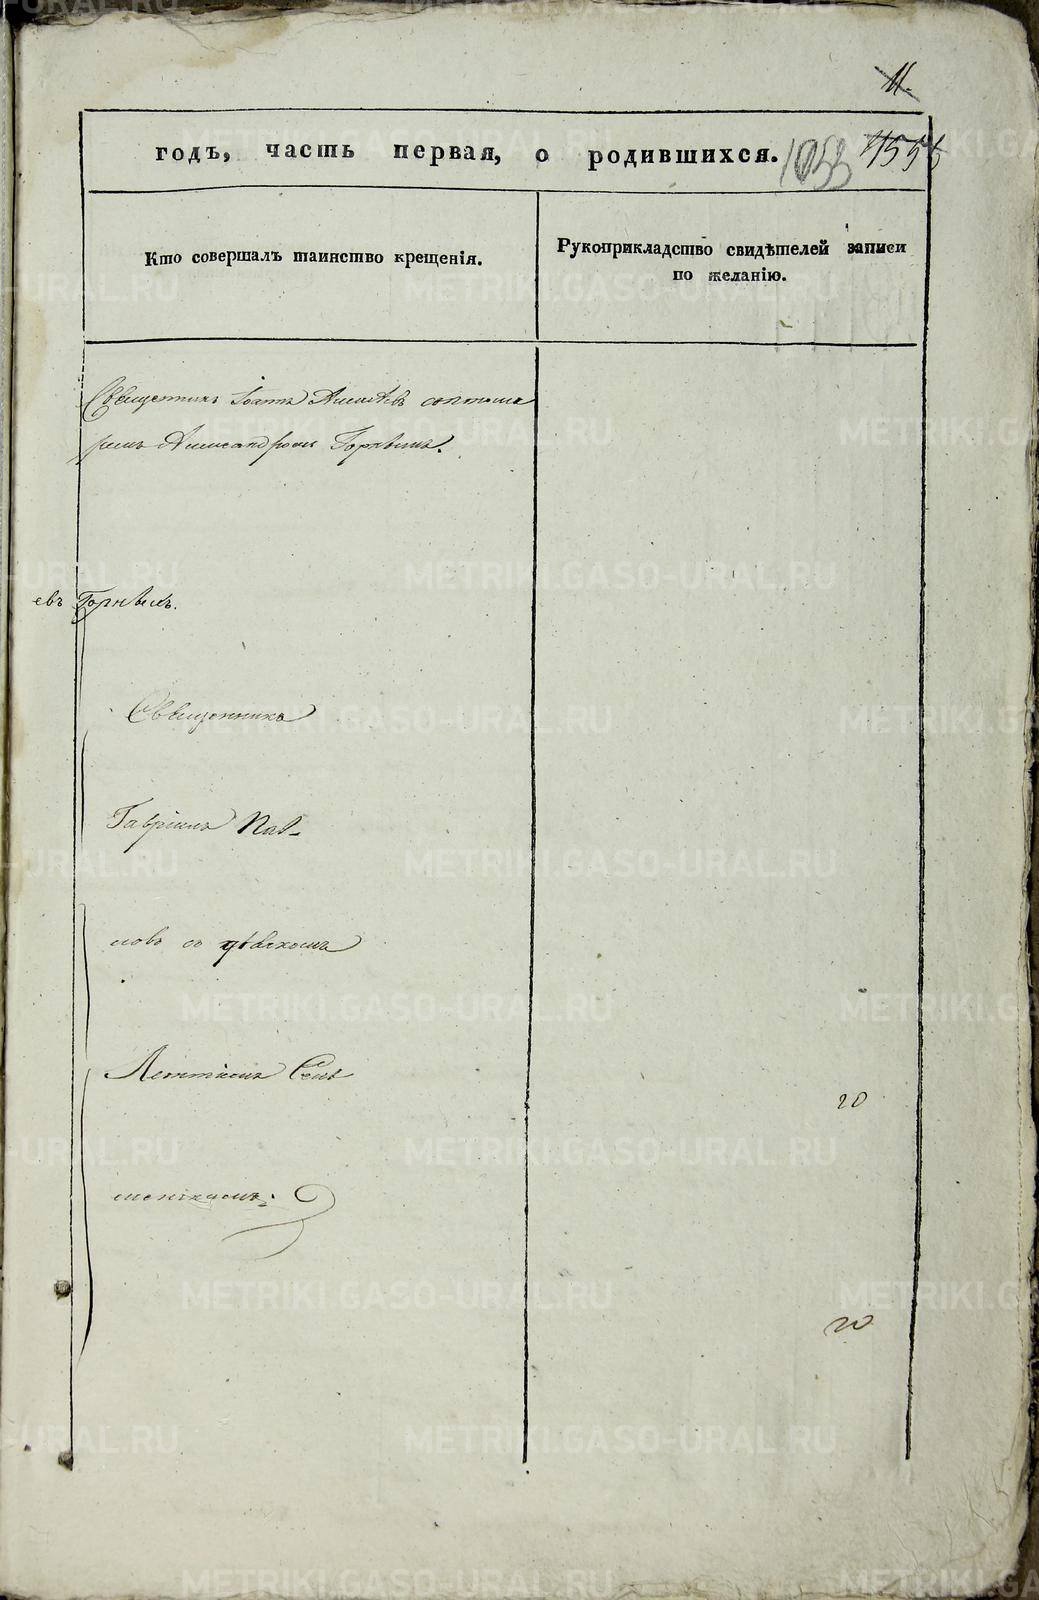 11.
годъ, часть первая, о родившихся.
1033 4555
Кто совершалъ таинство крещенія.
Рукоприкладство свидѣтелей записи
по желанію.
Священникъ Іоаннъ
Александромъ Горнымъ.
евъ
Священникъ
Гавріилъ Пав-
ловъ со дьячкомъ
Леонтіемъ
20
20
METRIKI.GASO-URAL.RU